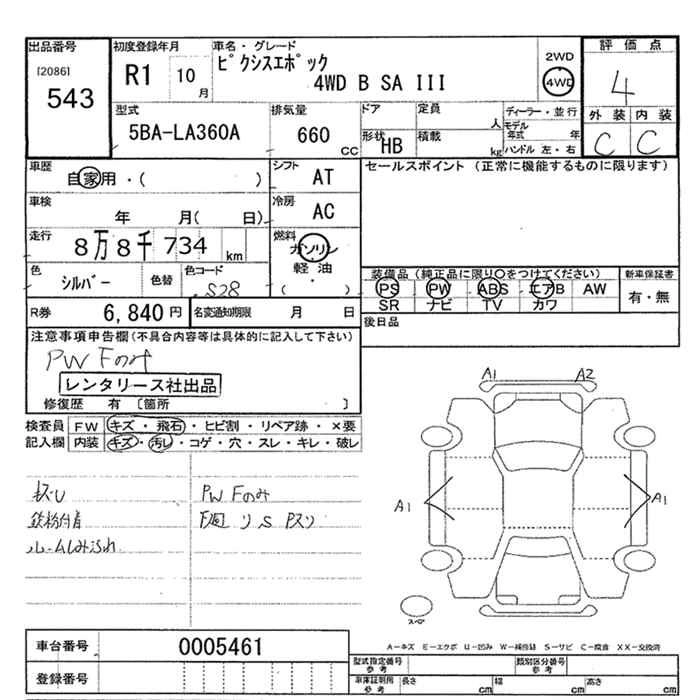 出品番号
[2086]
543
初度登録年月
R1 10月
車名・グレード
ピクシスエポック
4WD B SA III
2WD
4WD
評価点
4
外装 内装
C C
型式
5BA-LA360A
排気量
660 CC
ドア
定員 人
形状 HB
積載 kg
ディーラー・並行
モデル年式 年
ハンドル 左・右
車歴
自家用・( )
シフト
AT
セールスポイント (正常に機能するものに限ります)
車検
年 月( 日)
冷房
AC
走行
8万8千734 km
燃料
ガソリン
軽油
( )
色
シルバー
色替
色コード
S28
装備品 (純正品に限り○をつけてください)
PS PW ABS エアB AW
SR ナビ TV カワ
新車保証書
有・無
R券 6,840円
名変通知期限 月 日
後日品
注意事項申告欄(不具合内容等は具体的に記入して下さい)
PW Fのみ
レンタリース社出品
修復歴 有 [箇所 ]
検査員記入欄
FW キズ・飛石・ヒビ割・リペア跡・×要
内装 キズ・汚レ・コゲ・穴・スレ・キレ・破レ
キズU
鉄粉付着
ルームしみよごれ
PW Fのみ
A1 A2
A1 A1
スペア
A-キズ E-エクボ U-凹み W-補修跡 S-サビ C-腐食 XX-交換済
車台番号 0005461
登録番号
型式指定番号 参考
類別区分番号 参考
車庫証明用 参考
長さ cm 幅 cm 高さ cm